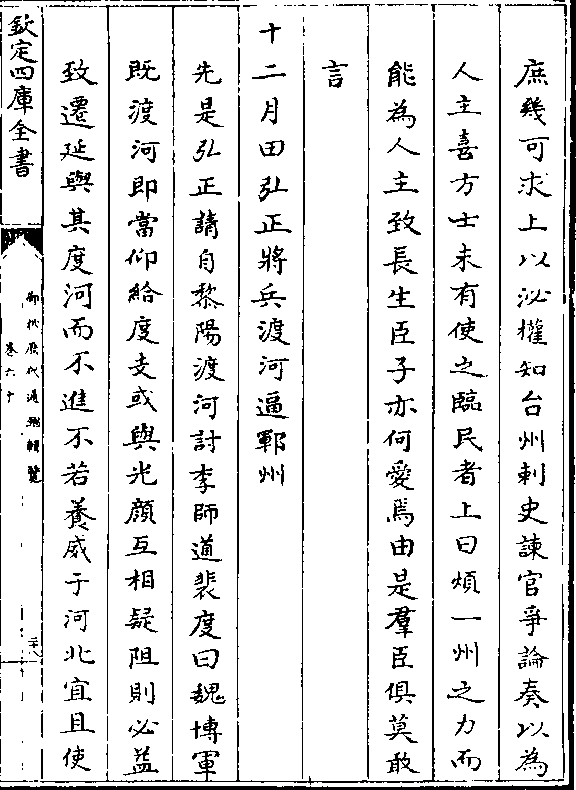 庶幾可求上以泌權知台州刺史諫官爭論奏以為
人主喜方士未有使之臨民者上曰煩一州之力而
能為人主致長生臣子亦何愛焉由是羣臣俱莫敢
言
十二月田弘正將兵渡河逼鄆州
先是弘正請自黎陽渡河討李師道裴度曰魏博軍
既渡河即當仰給度支或與光顔互相疑阻則必益
致遷延與其度河而不進不若養威于河北宜且使
欽定四庫全書
御批歷代通鑑輯覽
卷六十
二十八